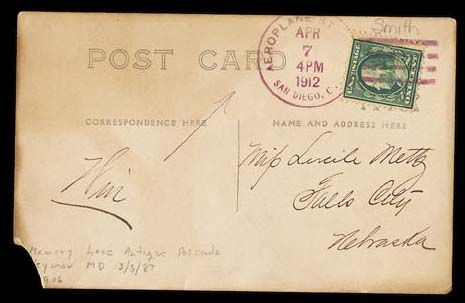 Smith
AEROPLANE ST
APR
7
4PM
1912
SAN DIEGO, C
POST CARD
CORRESPONDENCE HERE
NAME AND ADDRESS HERE
Miss Lucile Metz
Falls City
Nebraska
Memory Lane Antique Postcards
MD 3/5/87